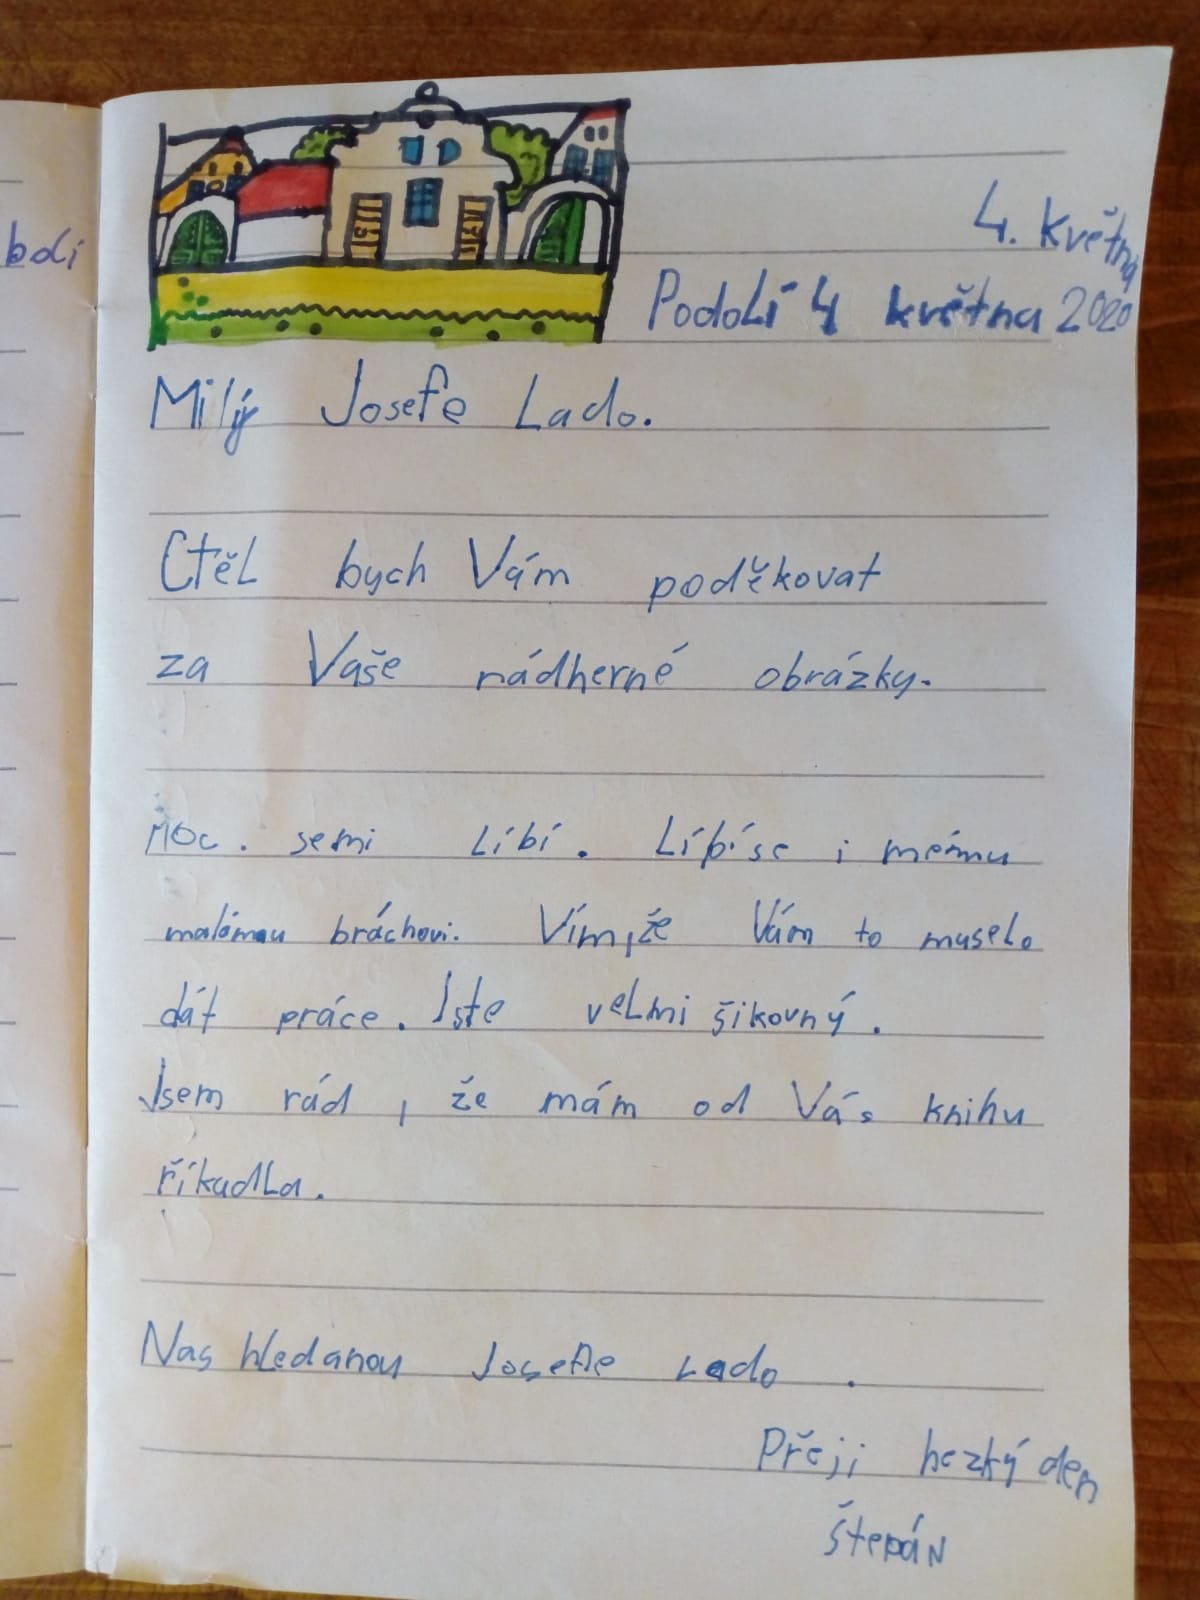 bolí
4. května
Podolí 4 května 2020
Milý Josefe Lado.
Ctěl bych Vám poděkovat
za Vaše nádherné obrázky.
Moc. semi líbí. Líbíse i mému
malému bráchovi. Vím, že Vám to muselo
dát práce. Jste velmi šikovný.
Jsem rád, že mám od Vás knihu
říkadla.
Nas hledanou Josefe Lado.
Přeji hezký den
Štepán